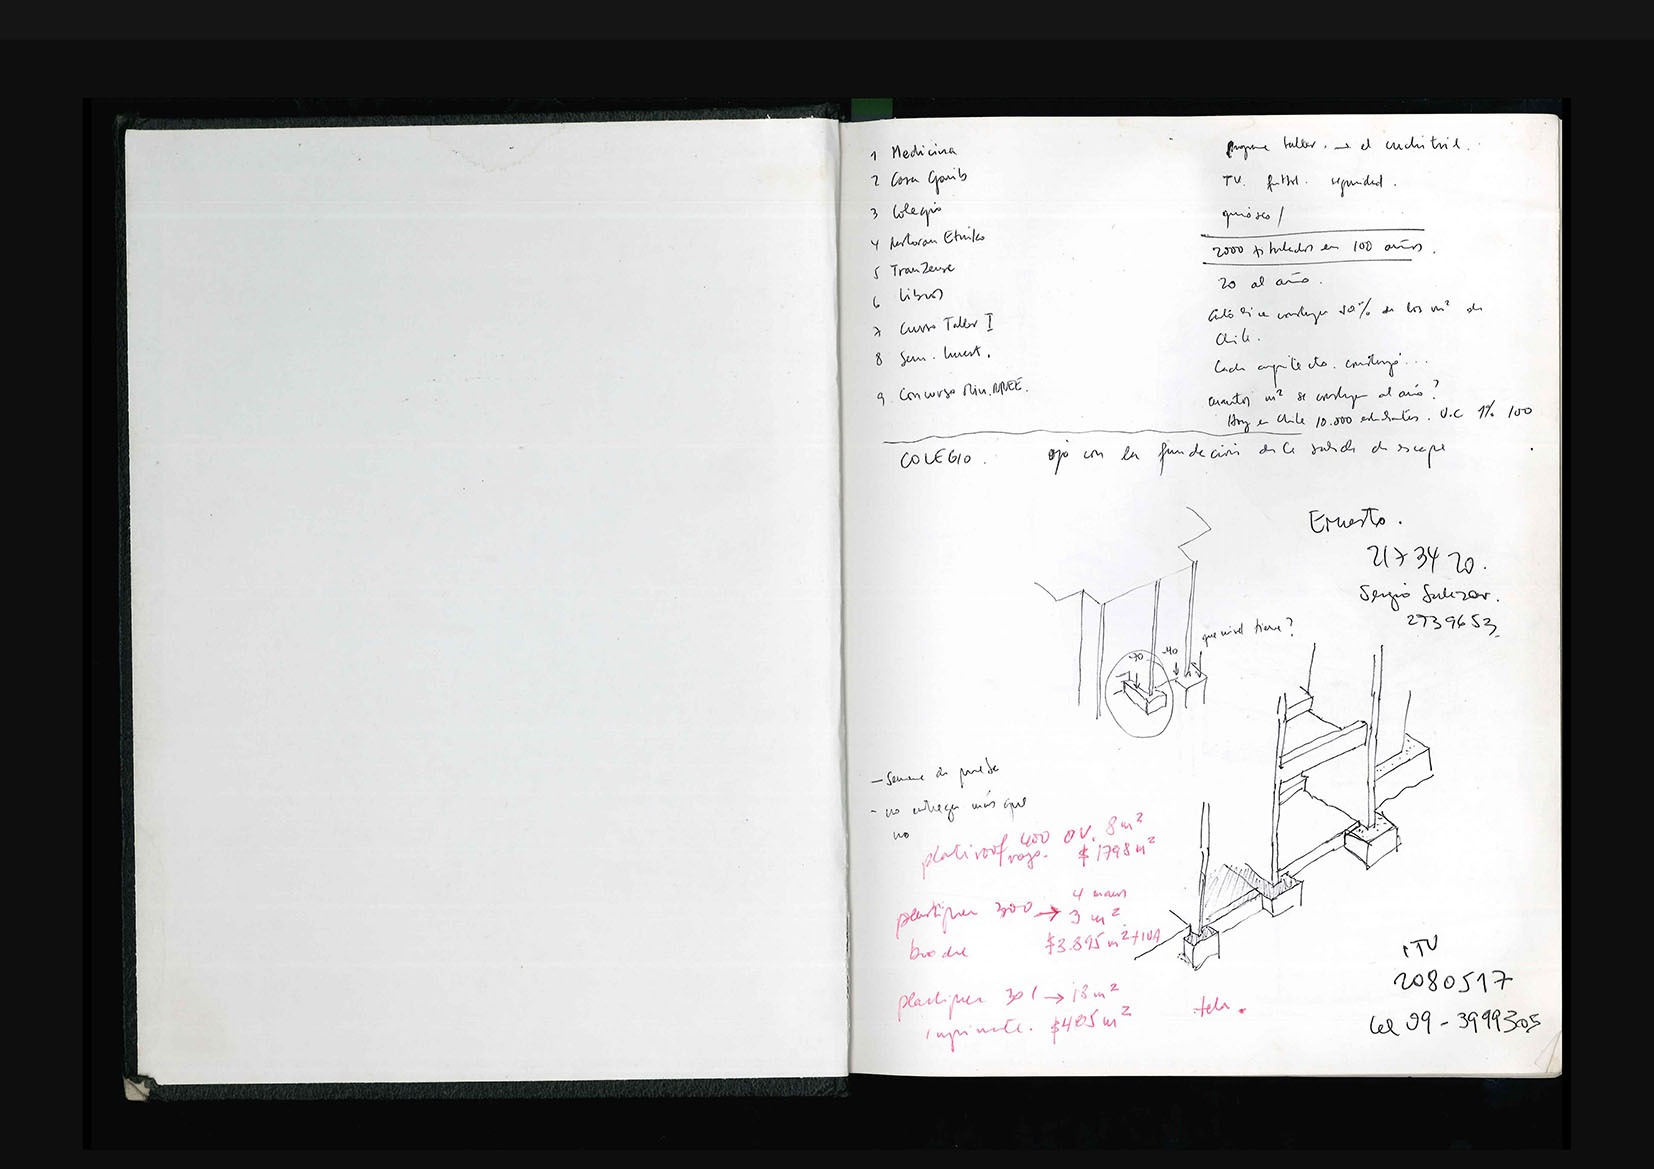 1 Medicina
2 Casa
3 Colegio
4 Restoran Etniko
5
6 Libros
7 Curso Taller I
8 Sem. Invest.
9 Concurso Min. RREE.
taller. → el cuchitril.
TV. futbol. seguridad.
quiosco /
2000 titulados en 100 años.
20 al año.
construye 50% de los m² de
Chile.
Cada arquitecto. construyó...
cuantos m² se construyen al año?
Hoy en Chile 10.000 estudiantes. U.C 1% 100
COLEGIO. ojo con la fundación de la salida de escape
Ernesto.
2173420.
Sergio Salazar.
2739653
que nivel tiene?
-70 -40
- Semana de prueba
- no entregar más que
no
400 OV. 8m²
rojo. $1798 m²
4 manos
300 → 3 m²
$3.895 m² + IVA
301 → 18 m²
$485 m²
tela.
2080517
cel 09-3999305